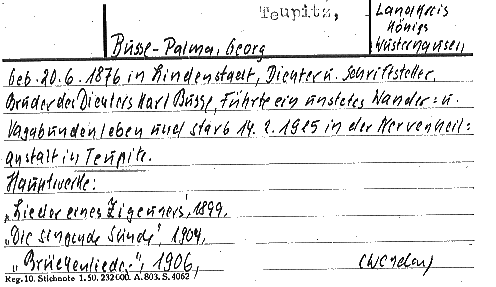 Teupitz,
Landkreis
Königs
Wusterhausen,
Busse-Palma, Georg
geb. 20.6.1876 in Lindenstadt, Dichter u. Schriftsteller,
Bruder des Dichters Karl Busse, führte ein unstetes Wander- u.
Vagabundenleben und starb 14.2.1915 in der Nervenheil-
anstalt in Teupitz.
Hauptwerke:
„Lieder eines Zigeuners", 1899,
„Die singende Sünde", 1904,
„Brückenlieder", 1906,
Keg. 10. Stichnote 1. 50. 232000. A. 803. S. 4062